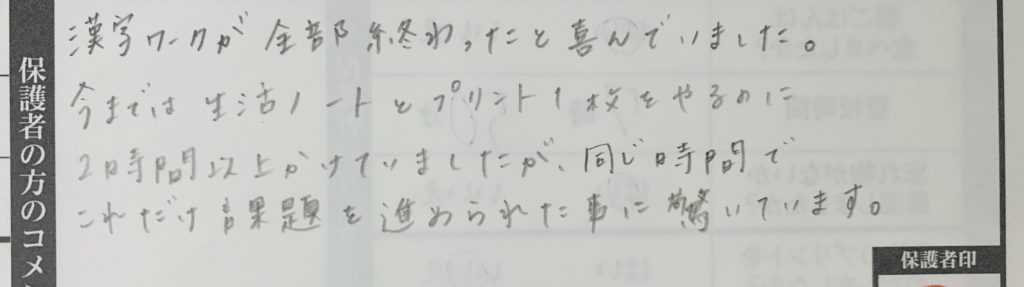 漢字ワークが全部終わったと喜んでいました。
今までは生活ノートとプリント1枚をやるのに
2時間以上かけていましたが、同じ時間で
これだけ課題を進められた事に驚いています。
保護者の方のコメン
保護者印